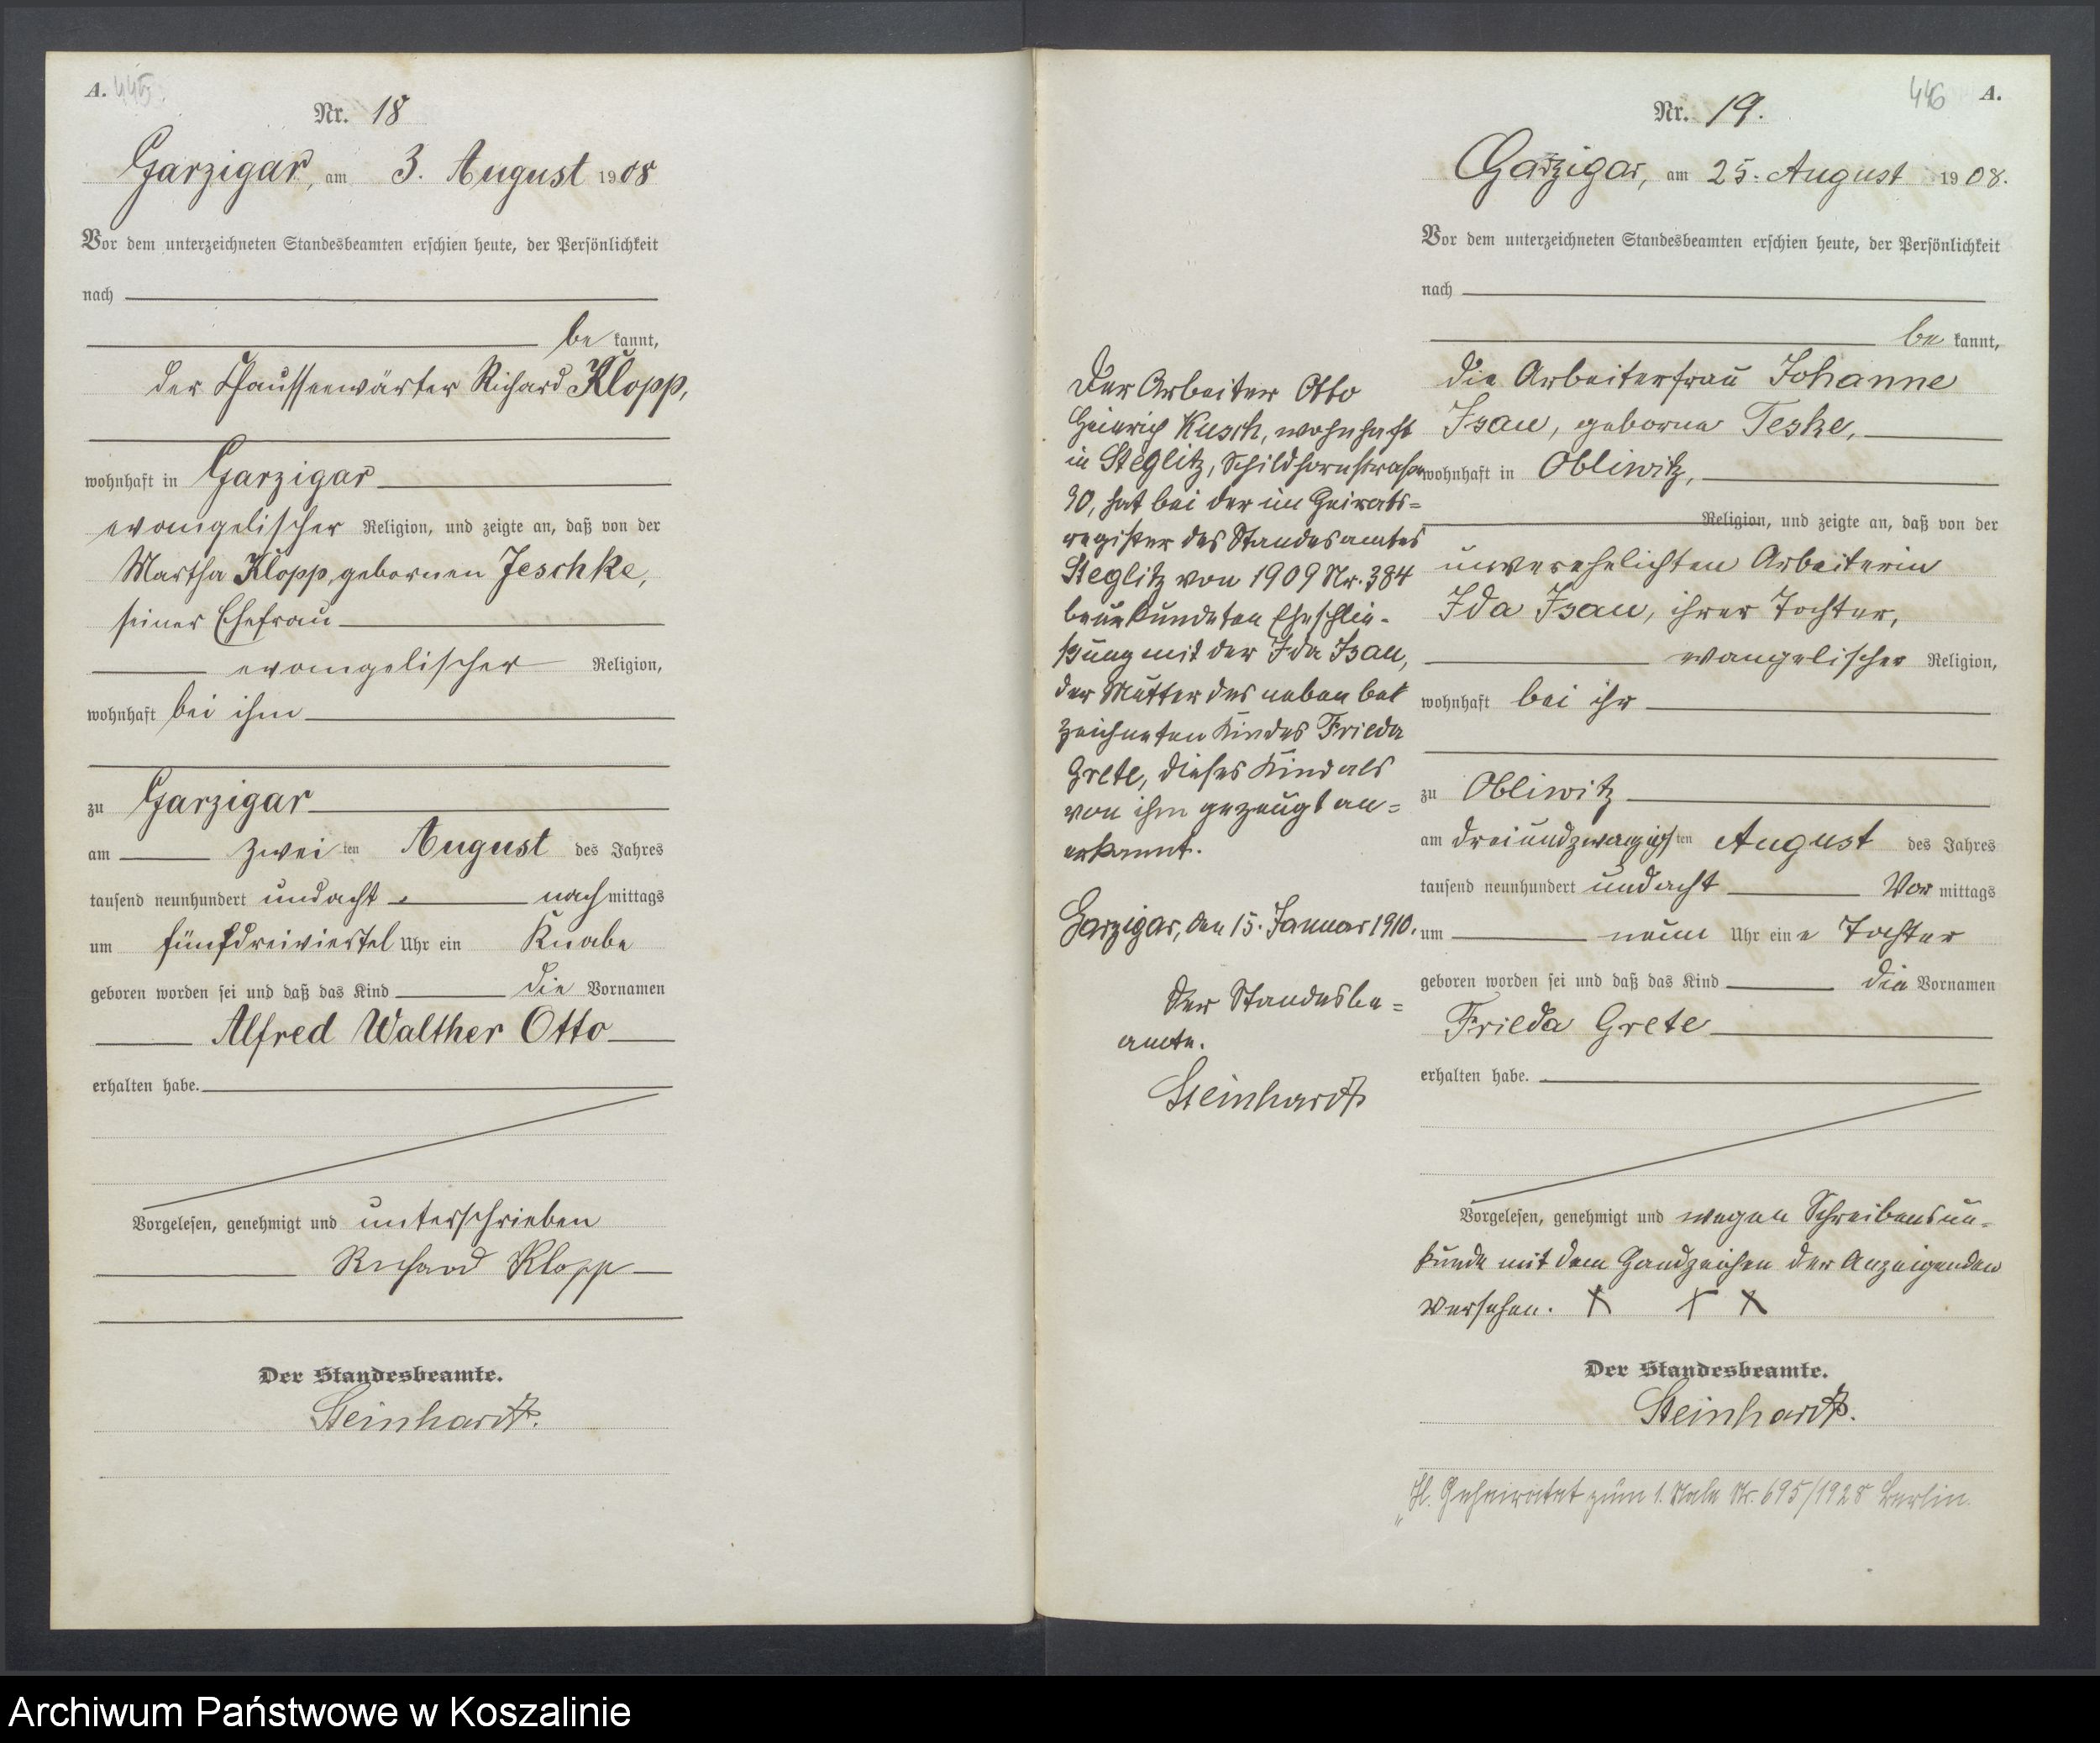 A. 445.
Nr. 18
Garzigar, am 3. August 1908
Vor dem unterzeichneten Standesbeamten erschien heute, der Persönlichkeit
nach
be kannt,
der Chausseewärter Richard Klopp,
wohnhaft in Garzigar
evangelischer Religion, und zeigte an, daß von der
Martha Klopp, gebornen Jeschke,
seiner Ehefrau
evangelischer Religion,
wohnhaft bei ihm
zu Garzigar
am zwei ten August des Jahres
tausend neunhundert und acht nach mittags
um fünfdreiviertel Uhr ein Knabe
geboren worden sei und daß das Kind die Vornamen
Alfred Walther Otto
erhalten habe.
Vorgelesen, genehmigt und unterschrieben
Richard Klopp
Der Standesbeamte.
Steinhardt.
446 A.
Nr. 19.
Garzigar, am 25. August 1908.
Vor dem unterzeichneten Standesbeamten erschien heute, der Persönlichkeit
nach
be kannt,
die Arbeiterfrau Johanne
Isau, geborne Teske,
wohnhaft in Obliwitz,
Religion, und zeigte an, daß von der
unverehelichten Arbeiterin
Ida Isau, ihrer Tochter,
evangelischer Religion,
wohnhaft bei ihr
zu Obliwitz
am dreiundzwanzigsten August des Jahres
tausend neunhundert und acht Vor mittags
um neun Uhr eine Tochter
geboren worden sei und daß das Kind die Vornamen
Frieda Grete
erhalten habe.
Vorgelesen, genehmigt und wegen Schreibensun-
kunde mit dem Handzeichen der Anzeigenden
versehen. X X X
Der Standesbeamte.
Steinhardt.
Geheiratet zum 1. Male Nr. 695/1928 Berlin.
Der Arbeiter Otto
Heinrich Kusch, wohnhaft
in Steglitz, Schildhornstraße
90, hat bei der im Heirats=
register des Standesamtes
Steglitz von 1909 Nr. 384
beurkundeten Eheschlie-
ßung mit der Ida Isau,
der Mutter des neben be=
zeichneten Kindes Frieda
Grete, dieses Kind als
von ihm gezeugt an=
erkannt.
Garzigar, den 15. Januar 1910.
Der Standesbe=
amte.
Steinhardt
Archiwum Państwowe w Koszalinie